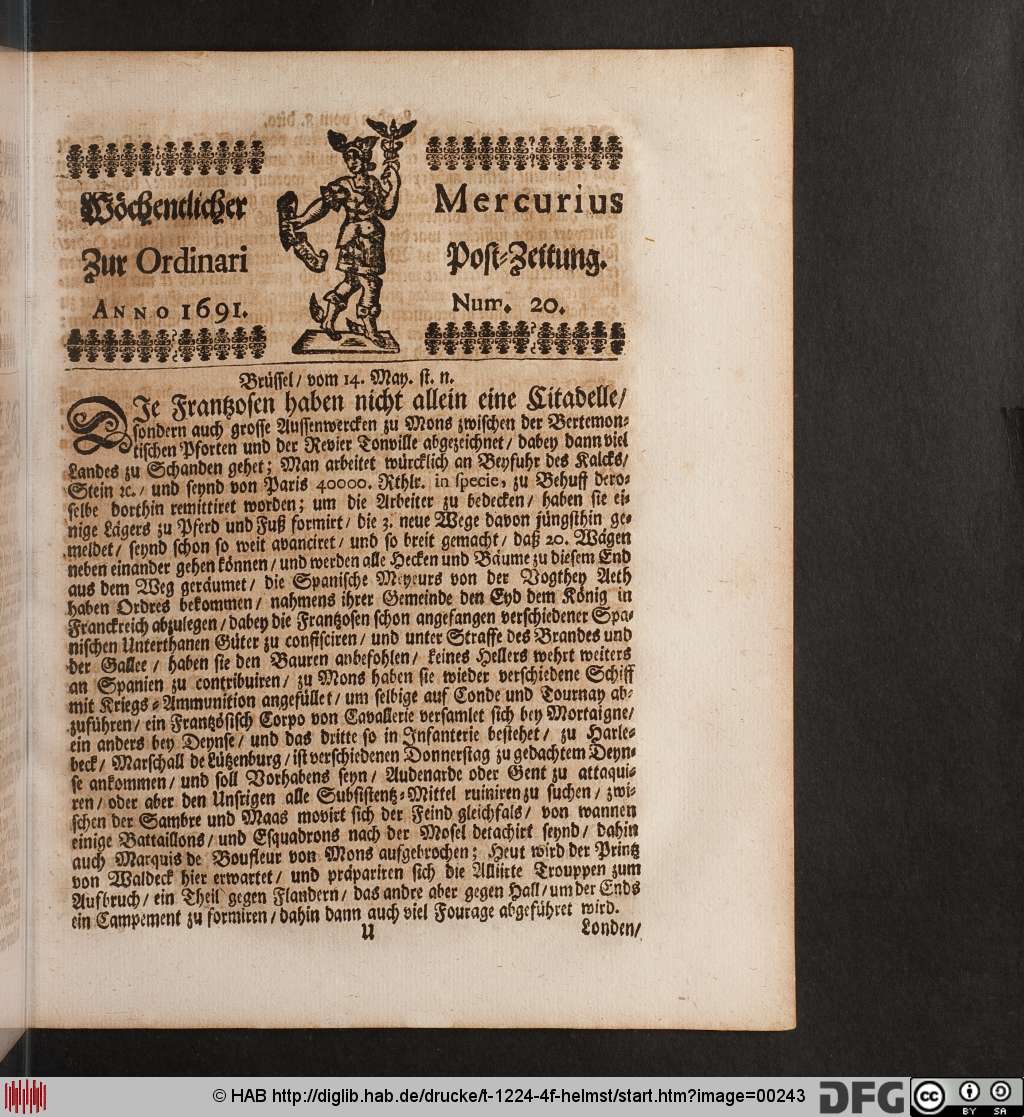 Wöchentlicher Mercurius
Zur Ordinari Post-Zeitung.
ANNO 1691. Num. 20.
Brüssel / vom 14. May. st. n.
DJe Frantzosen haben nicht allein eine Citadelle /
sondern auch grosse Aussenwercken zu Mons zwischen der Bertemon-
tischen Pforten und der Revier Tonville abgezeichnet / dabey dann viel
Landes zu Schanden gehet; Man arbeitet würcklich an Beyfuhr des Kalcks /
Stein ꝛc. / und seynd von Paris 40000. Rthlr. in specie, zu Behuff dero-
selbe dorthin remittiret worden; um die Arbeiter zu bedecken / haben sie ei-
nige Lägers zu Pferd und Fuß formirt / die 3. neue Wege davon jüngsthin ge-
meldet / seynd schon so weit avanciret / und so breit gemacht / daß 20. Wägen
neben einander gehen können / und werden alle Hecken und Bäume zu diesem End
aus dem Weg geräumet / die Spanische Meyeurs von der Vogthey Aeth
haben Ordres bekommen / nahmens ihrer Gemeinde den Eyd dem König in
Franckreich abzulegen / dabey die Frantzosen schon angefangen verschiedener Spa-
nischen Unterthanen Güter zu confisciren / und unter Straffe des Brandes und
der Gallee / haben sie den Bauren anbefohlen / keines Hellers wehrt weiters
an Spanien zu contribuiren / zu Mons haben sie wieder verschiedene Schiff
mit Kriegs-Ammunition angefüllet / um selbige auf Conde und Tournay ab-
zuführen / ein Frantzösisch Corpo von Cavallerie versamlet sich bey Mortaigne /
ein anders bey Deynse / und das dritte so in Infanterie bestehet / zu Harle-
beck / Marschall de Lützenburg / ist verschiedenen Donnerstag zu gedachtem Deyn-
se ankommen / und soll Vorhabens seyn / Audenarde oder Gent zu attaqui-
ren / oder aber den Unsrigen alle Subsistentz-Mittel ruiniren zu suchen / zwi-
schen der Sambre und Maas movirt sich der Feind gleichfals / von wannen
einige Battaillons / und Esquadrons nach der Mosel detachirt seynd / dahin
auch Marquis de Boufleur von Mons aufgebrochen; Heut wird der Printz
von Waldeck hier erwartet / und präpariren sich die Alliirte Trouppen zum
Aufbruch / ein Theil gegen Flandern / das andre aber gegen Hall / um der Ends
ein Campement zu formiren / dahin dann auch viel Fourage abgeführet wird.
U Londen /
© HAB http://diglib.hab.de/drucke/t-1224-4f-helmst/start.htm?image=00243
DFG
cc
BY SA